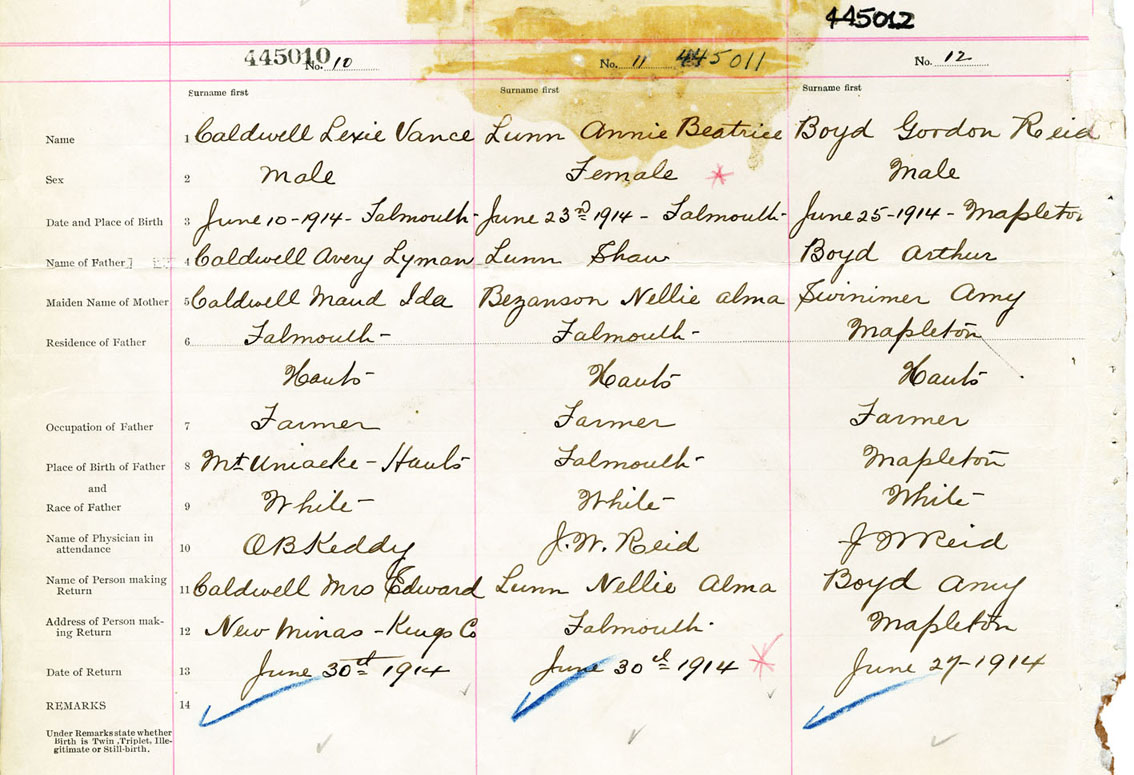 445012
445010 No. 10 No. 11 445011 No. 12
Surname first Surname first Surname first
Name 1 Caldwell Lexie Vance Lunn Annie Beatrice Boyd Gordon Reid
Sex 2 Male Female Male
Date and Place of Birth 3 June 10-1914- Falmouth- June 23rd 1914 - Falmouth- June 25-1914 - Mapleton
Name of Father 4 Caldwell Avery Lyman Lunn Shaw Boyd Arthur
Maiden Name of Mother 5 Caldwell Maud Ida Bezanson Nellie Alma Swinimer Amy
Residence of Father 6 Falmouth- Falmouth- Mapleton
Hants Hants Hants
Occupation of Father 7 Farmer Farmer Farmer
Place of Birth of Father 8 Mt Uniacke - Hants Falmouth- Mapleton
and
Race of Father 9 White White White
Name of Physician in
attendance 10 O B Keddy J. W. Reid J W Reid
Name of Person making
Return 11 Caldwell Mrs Edward Lunn Nellie Alma Boyd Amy
Address of Person mak-
ing Return 12 New Minas - Kings Co Falmouth- Mapleton
Date of Return 13 June 30th 1914 June 30th 1914 June 27-1914
REMARKS 14
Under Remarks state whether
Birth is Twin, Triplet, Ille-
gitimate or Still-birth.